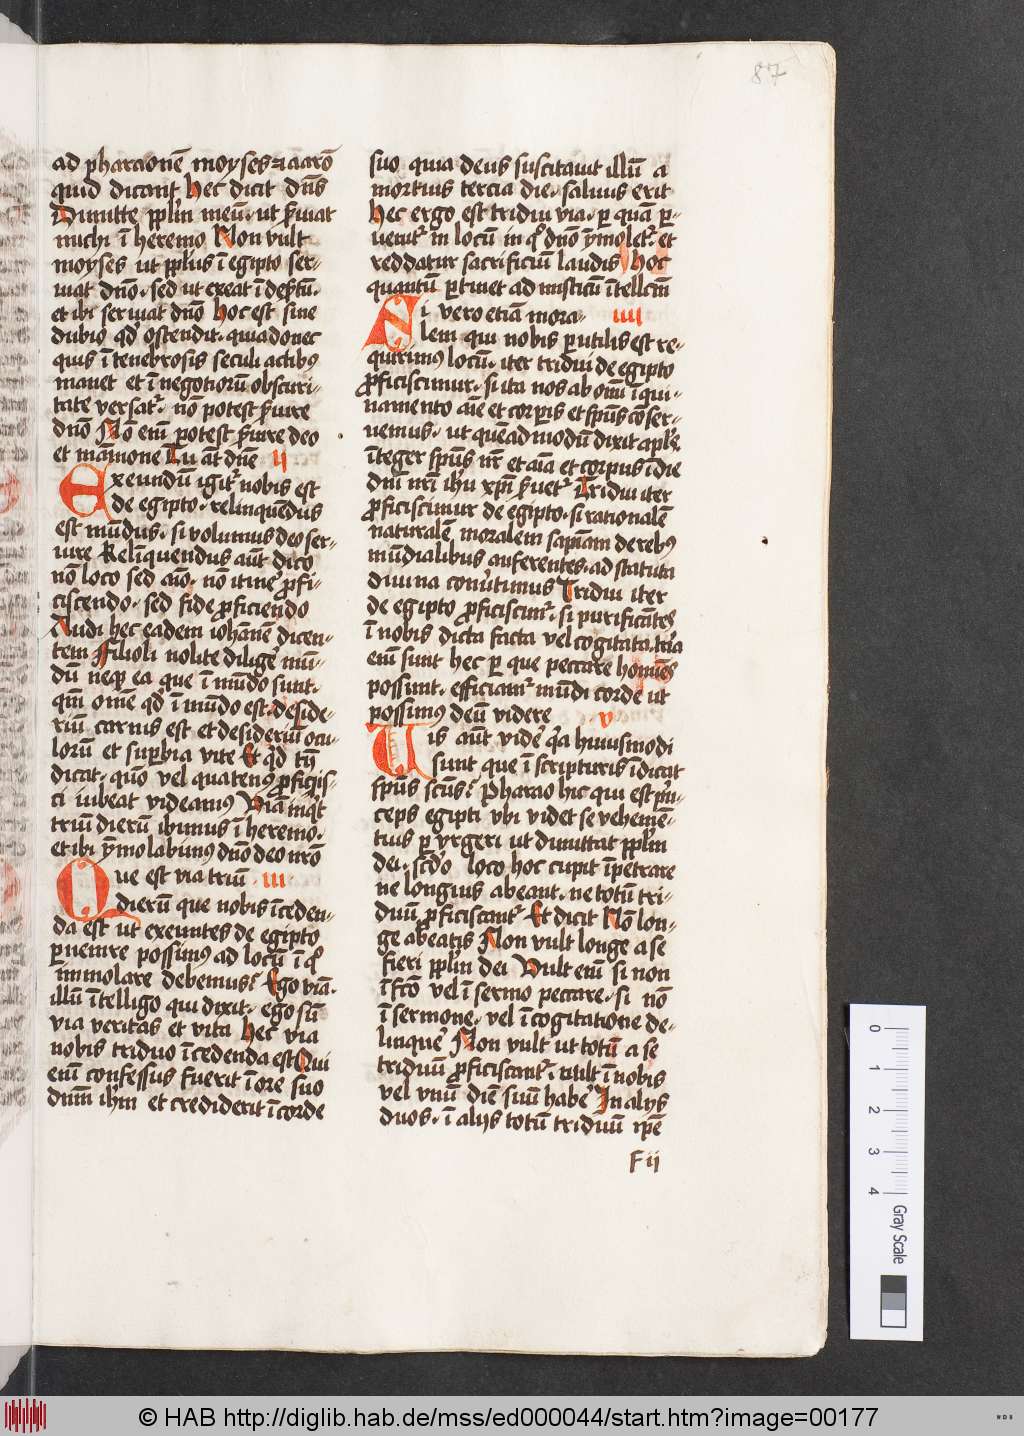 87
ad pharaonē moyses ⁊ aarō
quid dicant Hec dicit dn̄s
Dimitte pplm̄ meū. ut s̄uiat
michi ī heremo Non vult
moyses ut ppl̄us ī egipto ser-
uiat dn̄o. sed ut exeat ī dep̄tū.
et ibi seruiat dn̄o Hoc est sine
dubio qd̄ ostendit. quia donec
quis ī tenebrosis seculi actibꝰ
manet et ī negotiorū obscuri-
tate versat᷑. nō potest s̄uire
dn̄o Nō enī potest s̄uire deo
et māmone Tu aūt dn̄e ii
Exeundū igit᷑ nobis est
de egipto. relinquēdus
est mūdus. si volumus deo ser-
uire Relīquendus aūt dico
nō loco sed aīo. nō itine᷑ ꝓfi-
ciscendo. sed fide ꝓficiendo
Audi hec eadem iohānē dicen-
tem Filioli nolite dilige᷑ mū-
dū neqꝫ ea que ī mūdo sunt.
qm̄ omē qd̄ ī mūdo est. deside-
riū carnis est et desideriū ocu-
lorū et suꝑbia vite Et qd̄ tn̄
dicat. quō vel quatenꝰ ꝓficis-
ci iubeat videamꝰ Viā inqt̄
triū dierū ibimus ī heremo.
et ibi ȳmolabimꝰ dn̄o deo nr̄o
Que est via triū iii
dierū que nobis īceden-
da est ut exeuntes de egipto
ꝑuenire possimꝰ ad locū ī qͦ
immolare debemus? Ego viā.
illū ītelligo qui dixit. ego sū
via veritas et vita Hec via
nobis triduo īcedenda est Qui
enī confessus fuerit ī ore suo
dnm̄ ih̄m et crediderit ī corde
suo quia deus suscitauit illū a
mortuis tercia die. saluus erit
Hec ergo est tridui via. ꝑ quā ꝑ-
uenit᷑ in locū in qͦ dn̄o ȳmolet᷑. et
reddatur sacrificiū laudis Hoc
quantū ꝑtinet ad misticū ītellcm̄
Si vero etiā mora- iiii
lem qui nobis ꝑutilis est re-
quirimꝰ locū. iter tridui de egipto
ꝓficiscimur. si ita nos ab om̄i īqui-
namento aīe et corꝑis et sp̄us cōser-
uemus. ut quēadmodū dixit apl̄s
īteger sp̄us nr̄ et aīa et corpus ī die
dn̄i nr̄i ih̄u xp̄i s̄uet᷑ Tridui iter
ꝓficiscimur de egipto. si rationalē
naturalē moralem sapiam̄ de rebꝰ
mūdialibus auferentes. ad statuta
diuina conūtimus Tridui iter
de egipto ꝓficiscim᷑. si purificātes
ī nobis dicta facta vel cogitata. tria
enī sunt hec ꝑ que peccare homīes
possunt. efficiam᷑ mūdi corde ut
possimꝰ deū videre v
Vis aūt vide᷑ qͣa huiusmodi
sunt que ī scripturis īdicat
sp̄us scūs? Pharao hic qui est pn̄-
ceps egipti vbi videt se vehemē-
tius ꝑ vrgeri ut dimittat pplm̄
dei. scd̄o loco hoc cupit īpetrare
ne longius abeant. ne totū tri-
duū ꝓficiscant᷑ Et dicit Nō lon-
ge abeatis Non vult longe a se
fieri pplm̄ dei Vult enī si non
ī fc̄o vel ī sermo peccare. si nō
ī sermone. vel ī cogitatione de-
linque᷑ Non vult ut totū a se
triduū ꝓficiscant᷑. vult ī nobis
vel vnū diē suū habe᷑ In alijs
duos. ī alijs totū triduū ip̄e
F ii
0 1 2 3 4
Gray Scale
© HAB http://diglib.hab.de/mss/ed000044/start.htm?image=00177